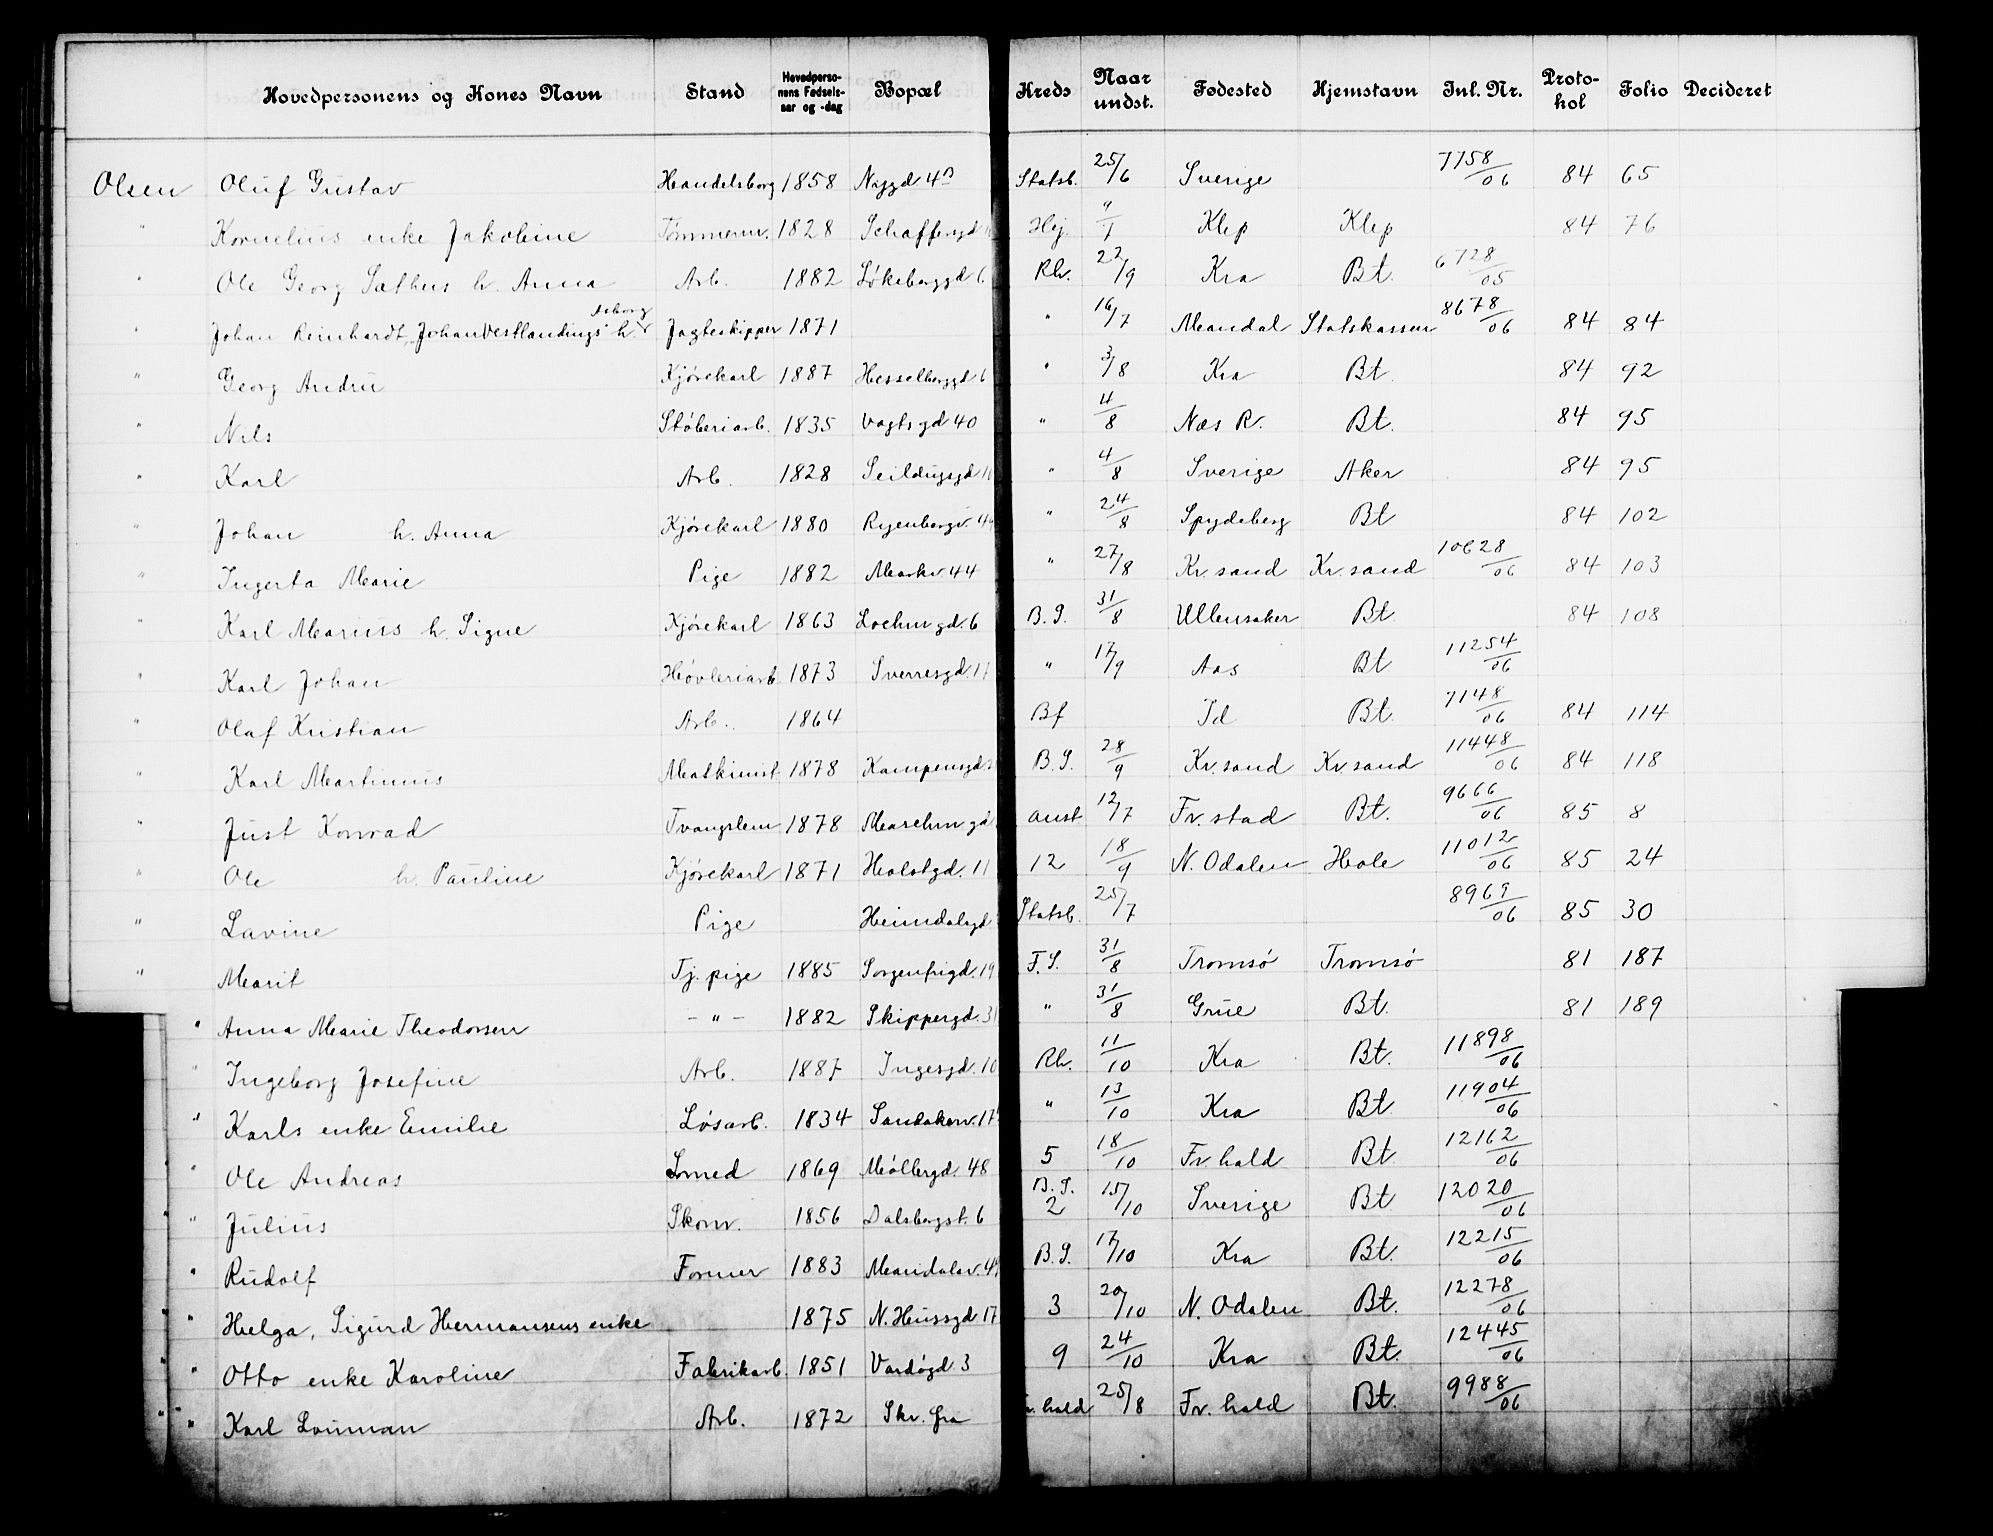 Hovedpersonens og Kones Navn Stand Hovedpersonens Fødselsaar og -dag Bopæl Kreds Naar undst. Fødested Hjemstavn Inl. Nr. Protokol Folio Decideret
Olsen Oluf Gustav Handelsborg 1858 Nygd 4 Statsb. 25/6 Sverige 7758/06 84 65
" Kornelius enke Jakobine Tømmerm. 1828 Schaffersgd Hej. Klep Klep 84 76
" Ole Georg Sæthus h. Anna Arb. 1882 Løkeberggd 6 Rh. 22/9 Kra Bt. 6728/05
" Johan Reinhardt, Johan Vestlandings h. Asborg Jagteskipper 1871 " 16/7 Mandal Statskassen 8678/06 84 84
" Georg Andrii Kjørekarl 1887 Hesselberggd 6 " 3/8 Kra Bt. 84 92
" Nils Støberiarb. 1835 Vogtsgd 40 " 4/8 Næs R. Bt. 84 95
" Karl Arb. 1828 Seildugsgd " 4/8 Sverige Aker 84 95
" Johan h. Anna Kjørekarl 1880 Ryenbergv. " 24/8 Spydeberg Bt 84 102
" Ingerta Marie Pige 1882 Markv. 44 " 27/8 Kr. sand Kr. sand 10628/06 84 103
" Karl Marius h. Signe Kjørekarl 1863 Lochmgd. 6 B.S. 31/8 Ullensaker Bt. 84 108
" Karl Johan Høvleriarb. 1873 Sverresgd. 17 " 17/9 Aas Bt 11254/06
" Olaf Kristian Arb. 1864 Bf Id Bt. 7148/06 84 114
" Karl Martinius Maskinist 1878 Kampensgd B.S. 28/9 Kr. sand Kr. sand 11448/06 84 118
" Just Konrad Tvangslem 1878 Marchmgd anst 12/7 Fr. stad Bt. 9666/06 85 8
" Ole h. Pauline Kjørekarl 1871 Holstgd. 11 12 18/9 N. Odalen Hole 11012/06 85 24
" Lavine Pige Heimdalsgd Statsb. 25/7 8969/06 85 30
" Marit Tj. pige 1885 Sorgenfrigd. 19 F.S. 31/8 Tromsø Tromsø 81 187
" Anna Marie Theodorsen - " - 1882 Skippergd. 31 " 31/8 Grue Bt. 81 189
" Ingeborg Josefine Arb. 1887 Ingesgd. 10 Rh. 11/10 Kra Bt. 11898/06
" Karls enke Emilie Løsarb. 1834 Sandakerv. 17 " 13/10 Kra Bt 11904/06
" Ole Andreas Smed 1869 Møllergd. 48 5 18/10 Fr. hald Bt. 12162/06
" Julius Skom. 1856 Dalsbergst. 6 B.S. 2 15/10 Sverige Bt 12020/06
" Rudolf Former 1883 Mandalsv. B.S. 17/10 Kra Bt. 12215/06
" Helga, Sigurd Hermansens enke 1875 N. Hussgd 17 3 20/10 N. Odalen Bt. 12278/06
" Otto enke Karoline Fabrikarb. 1851 Vardøgd. 3 9 24/10 Kra Bt. 12445/06
" Karl Louman Arb. 1872 Skr. fra Fr. hald 25/8 Fr. hald Bt. 9988/06